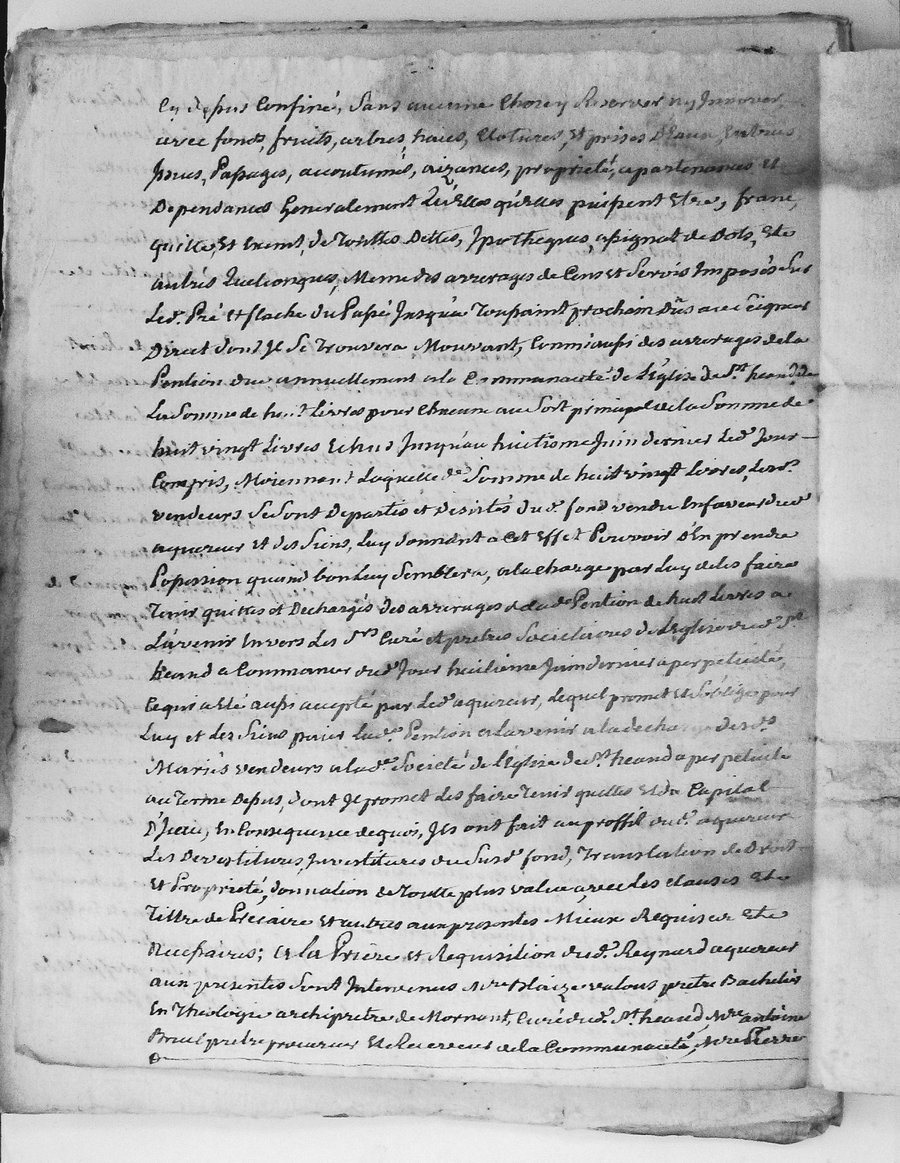 Cy depus Confiné, Sans aucune Chozey Reserver ny Innover
avec fonds, fruits, arbres, haies, Clotures, Et prises D'Eaux, Entrées
Issues, Passages, accoutumés, aizances, proprieté, apartenances et
Dependances Generalement qu'Elles puissent Etre, franc,
quille, Et Exempt, de Toutes Dettes, Ipotheques, asignat de Dots, Et de
autres quelconques, Meme des arrerages de Cens et Servis Imposés Sur
Led. Pré et flache du Passé Jusqu'a Toussaint prochain Dûs avec Seigneur
Direct dont Il Se Trouvera Mouvant, Comm'aussi des arrerages de la
Pention due annuellement a la Communauté de L'Eglise de St. heand de
La Somme de huit Livres pour Chacune au Sort principal de la Somme de
huit vingt Livres Echus Jusqu'au huitieme Juin dernier Led. Jour
Compris, Moiennant Laquelle de. Somme de huit vingt Livres, Lesd.
vendeurs Se Sont Departis et Desistés du d. fond vendu En faveur dud.
aquereur Et des Siens, Luy donnant a Cet Effet Pouvoir D'En prendre
Possession quand bon Luy Semblera, a la Charge par Luy de les faire
Tenir quittes et Dechargés Des arrerages de lade. Pention de huit Livres a
L'avenir Envers Les Srs. Curé et pretres Societaires de L'Eglise dud. St.
heand a Commancer dud. Jour huitieme Juin dernier a perpetuité,
Ce qui a Eté aussi accepté par Led. aquereur, lequel promet et S'oblige pour
Luy et Les Siens payer Lade. Pention a L'avenir a la decharge Desd.
Mariés vendeurs a lade. Societé de L'Eglise de St. heand a perpetuité
au Terme Depus, dont Il promet Les faire Tenir quittes Et du Capital
D'Jcelle, En Consequence de quoi, Ils ont fait au proffit dud. aquereur
Les Devestitures, Investitures du Susd. fond, Translation de Droit
Et Proprieté, donnation de Toutte plus value, avec les clauses Et de
Tittre de Précaire Et autres aux presentes Mieux Requises Et
Necessaires; a la Prière et Requisition dud. Reynard aquereur
aux presentes Sont Intervenus Mre Blaize valous pretre Bachelier
En Theologie archipretre de Mornant, Curé dud. St. heand, Mre antoine
Bruel pretre procureur Et Receveur de la Communauté, Mre Pierre